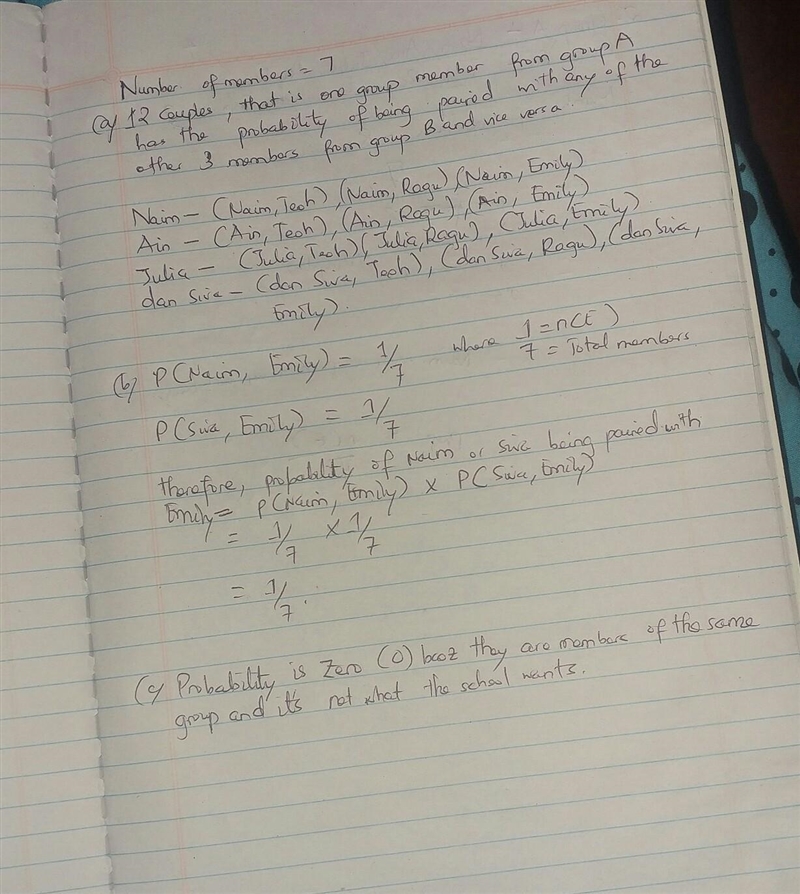 Number of members = 7
(a) 12 couples, that is one group member from group A
has the probability of being paired with any of the
other 3 members from group B and vice versa.
Naim - (Naim, Teoh), (Naim, Ragu), (Naim, Emily)
Ain - (Ain, Teoh), (Ain, Ragu), (Ain, Emily)
Julia - (Julia, Teoh) (Julia, Ragu), (Julia, Emily)
dan Siva - (dan Siva, Teoh), (dan Siva, Ragu), (dan Siva,
Emily).
(b) P(Naim, Emily) = 1/7 where 1 = n(E)
7 = Total members
P(Siva, Emily) = 1/7
therefore, probability of Naim or Siva being paired with
Emily = P(Naim, Emily) × P(Siva, Emily)
= 1/7 × 1/7
= 1/7.
(c) Probability is Zero (0) bcoz they are members of the same
group and it's not what the school wants.